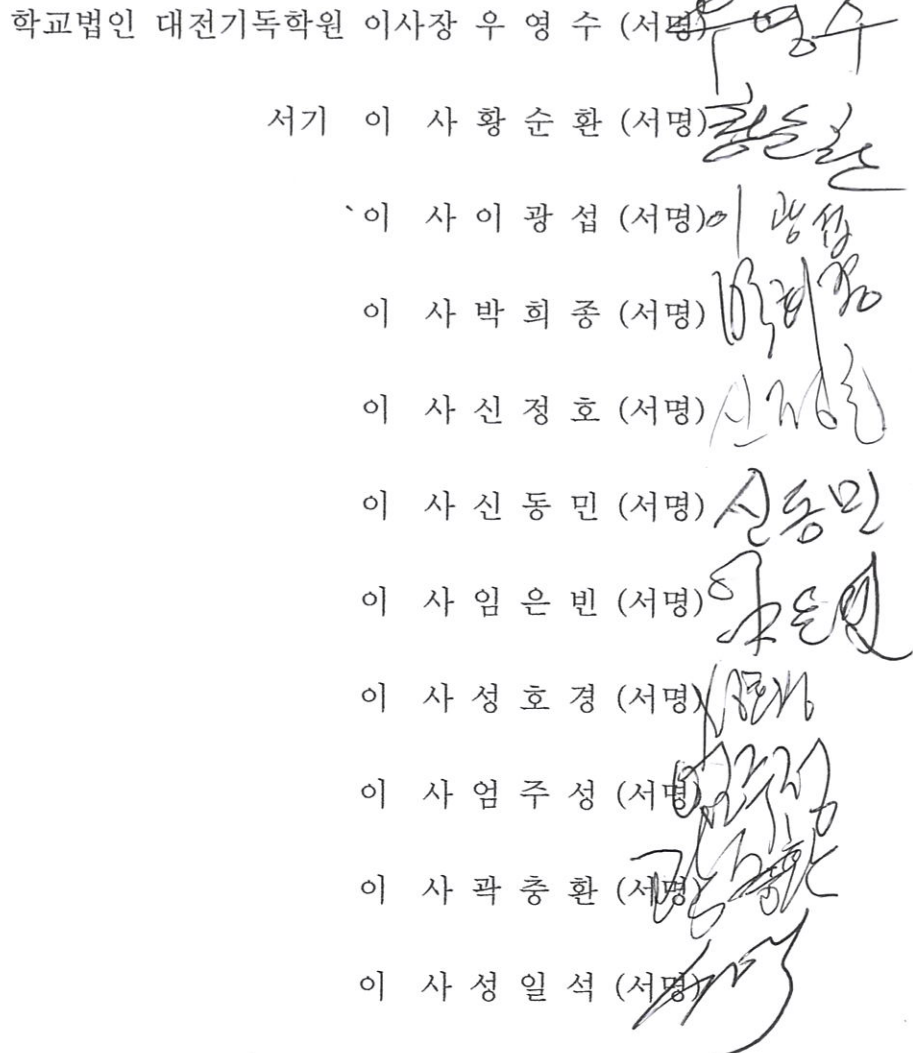 학교법인 대전기독학원 이사장 우 영 수 (서명) 우영수
서기 이 사 황 순 환 (서명) 황순환
`이 사 이 광 섭 (서명) 이 광섭
이 사 박 희 종 (서명) 박희종
이 사 신 정 호 (서명) 신정호
이 사 신 동 민 (서명) 신동민
이 사 임 은 빈 (서명)
이 사 성 호 경 (서명) 성호경
이 사 엄 주 성 (서명) 엄주성
이 사 곽 충 환 (서명) 곽충환
이 사 성 일 석 (서명)